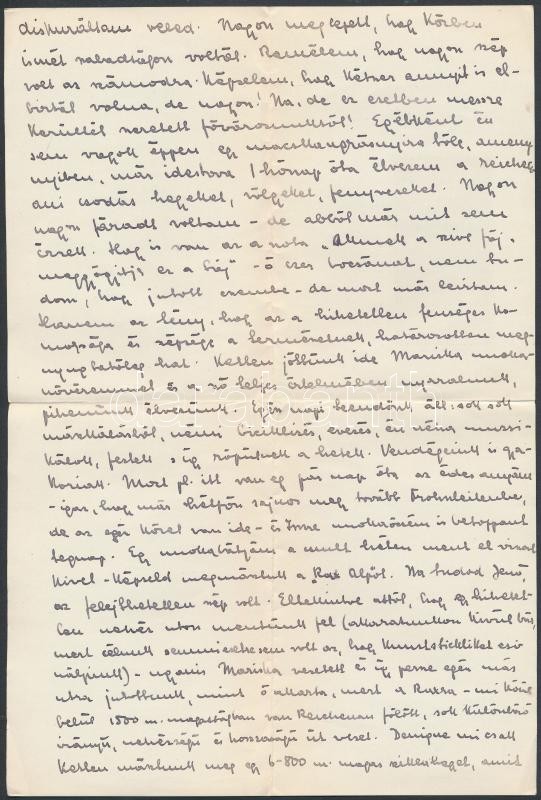 diskuráltam veled. Nagyon meglepett, hogy Kőrben
ismét szabadságon voltál. Remélem, hogy nagyon szép
volt az számodra. Képzelem, hogy kétszer annyit is el-
bírtál volna, de nagyon! Na, de ez esetben messze
kerültél szeretett fővárosunktól! Egyébként én
sem vagyok éppen egy macskaugrásnyira tőle, ameny-
nyiben, már idestova 1 hónap óta élvezem a
csodás hegyeket, völgyeket, fenyveseket. Nagyon
nagyon fáradt voltam - de abból már mit sem
érzek. Hogy is van az a nóta „Akinek a szíve fáj,
meggyógyítja ez a táj" - ó ezer bocsánat, nem tu-
dom, hogy jutott eszembe - de most már leírtam.
Hanem az tény, hogy az a hihetetlen fenséges ko-
molysága és szépsége a természetnek, határozottan meg-
nyugtatólag hat. Ketten jöttünk ide Mariska unoka-
nővéremmel és a szó teljes értelmében nyaraltunk,
pihentünk élveztünk. Egész napi teendőnk állt: sok sok
mászkálásból, némi biciklizés, evés, én néha muzsi-
káltam, festek s így röpülnek a hetek. Vendégeink is gya-
koriak. Most pl. itt van egy pár nap óta az édesanyám
- igaz, hogy már hétfőn sajnos megy tovább Frohnleitenbe,
de az egész közel van ide - és Imre unokaöcsém is betoppant
tegnap. Egy unokabátyám a múlt héten ment el vissza
Kivel - képzeld megmásztuk a Rax Alpot. Na tudod Jenő,
az felejthetetlen szép volt. Eltekintve attól, hogy hihetet-
len nehéz úton mentünk fel (akaratunkon kívül bár,
mert célunk semmiesetre sem volt az, hogy kunststückliket csi-
náljunk) - ugyanis Mariska vezetett és így persze egész más
útra jutottunk, mint ő akarta, mert a Raxra - mi körül-
belül 1800 m. magasságban van Reichenau fölött, sok különböző
irányú, nehézségű és hosszúságú út vezet. Denique mi csak
ketten másztunk meg egy 6-800 m. magas sziklahegyet, amit